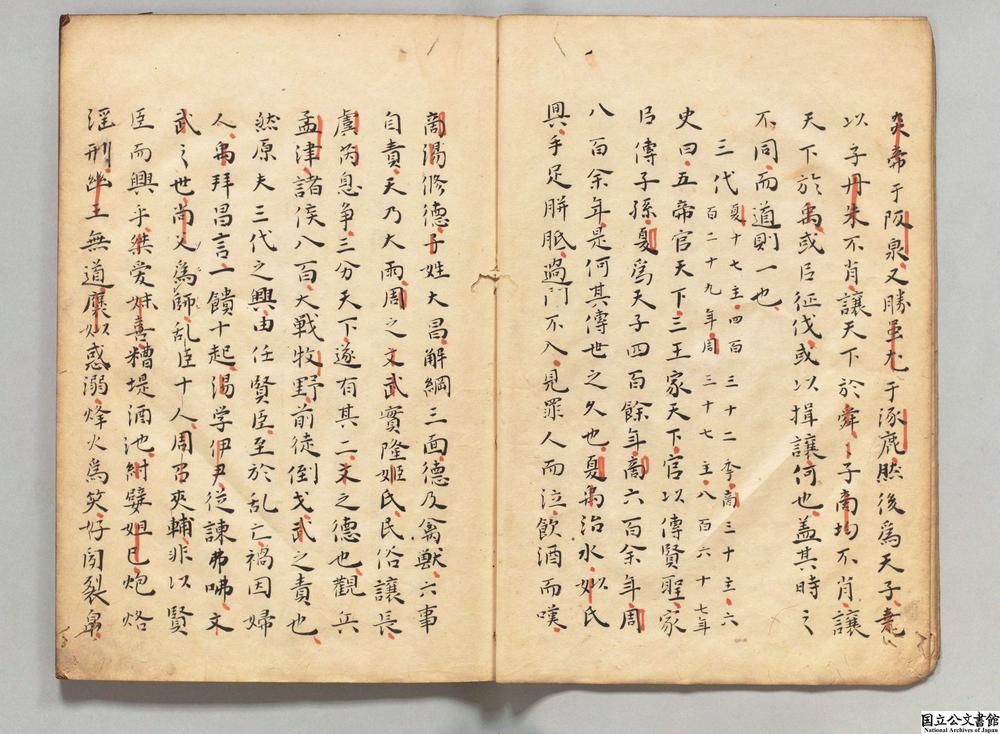 炎帝于阪泉又勝蚩尤于涿鹿然後爲天子堯
以子丹朱不肖讓天下於舜〻子商均不肖讓
天下於禹或臣征伐或以揖讓何也盖其時之
不同而道則一也
三代夏十七主四百三十二年商三十主六
百二十九年周三十七主八百六十七年
史曰五帝官天下三王家天下官以傳賢聖家
㠯傳子孫夏爲天子四百餘年商六百余年周
八百余年是何其傳世之久也夏禹治水姒氏
興手足胼胝過門不入見罪人而泣飲酒而嘆
商湯修德子姓大昌解綱三面德及禽獸六事
自責天乃大雨周之文武實隆姬氏民俗讓長
虞芮息争三分天下遂有其二文之德也觀兵
孟津諸侯八百大戰牧野前徒倒戈武之責也
然原夫三代之興由任賢臣至於乱亡禍因婦
人禹拜昌言一饋十起湯学伊尹從諫弗咈文
武之世尚父爲師乱臣十人周召夾輔非以賢
臣而興乎桀愛妹喜糟堤酒池紂嬖妲巳炮烙
滛刑幽王無道褒姒惑溺烽火爲笑好聞裂帛
国立公文書館
National Archives of Japan